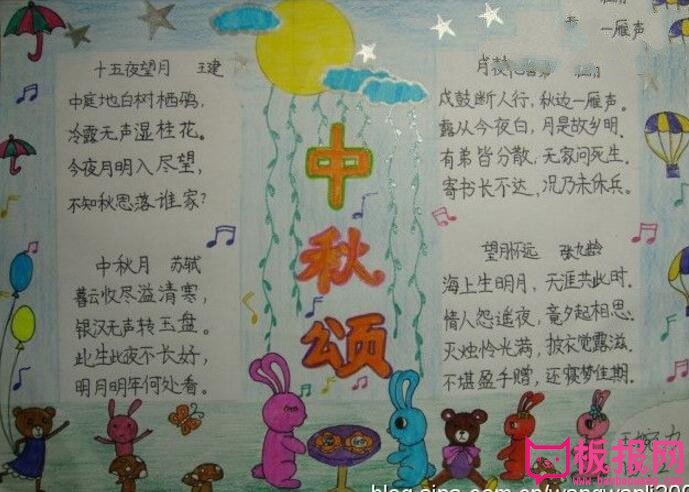 十五夜望月 王建
中庭地白树栖鸦，
冷露无声湿桂花。
今夜月明人尽望，
不知秋思落谁家？
中秋月 苏轼
暮云收尽溢清寒，
银汉无声转玉盘。
此生此夜不长好，
明月明年何处看。
中
秋
颂
一雁声
戍鼓断人行，秋边一雁声。
露从今夜白，月是故乡明．
有弟皆分散，无家问死生．
寄书长不达，况乃未休兵。
望月怀远 张九龄
海上生明月，天涯共此时．
情人怨遥夜，竟夕起相思．
灭烛怜光满，披衣觉露滋．
不堪盈手赠，还寝梦佳期．
板报网